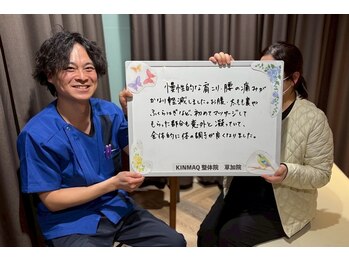 慢性的な肩こり、腰の痛みが
かなり軽減しました。お腹・太もも裏や
ふくらはぎなど、初めてマッサージして
もらった部分も意外と凝っていて、
全体的に体の調子が良くなりました。
KINMAQ 整体院 草加院